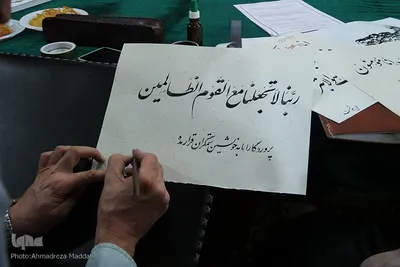 ربنا لا تجعلنا مع القوم الظالمین
پروردگارا ما را ستمگران قرار مده
iqna
Photo:Ahmadreza Maddah